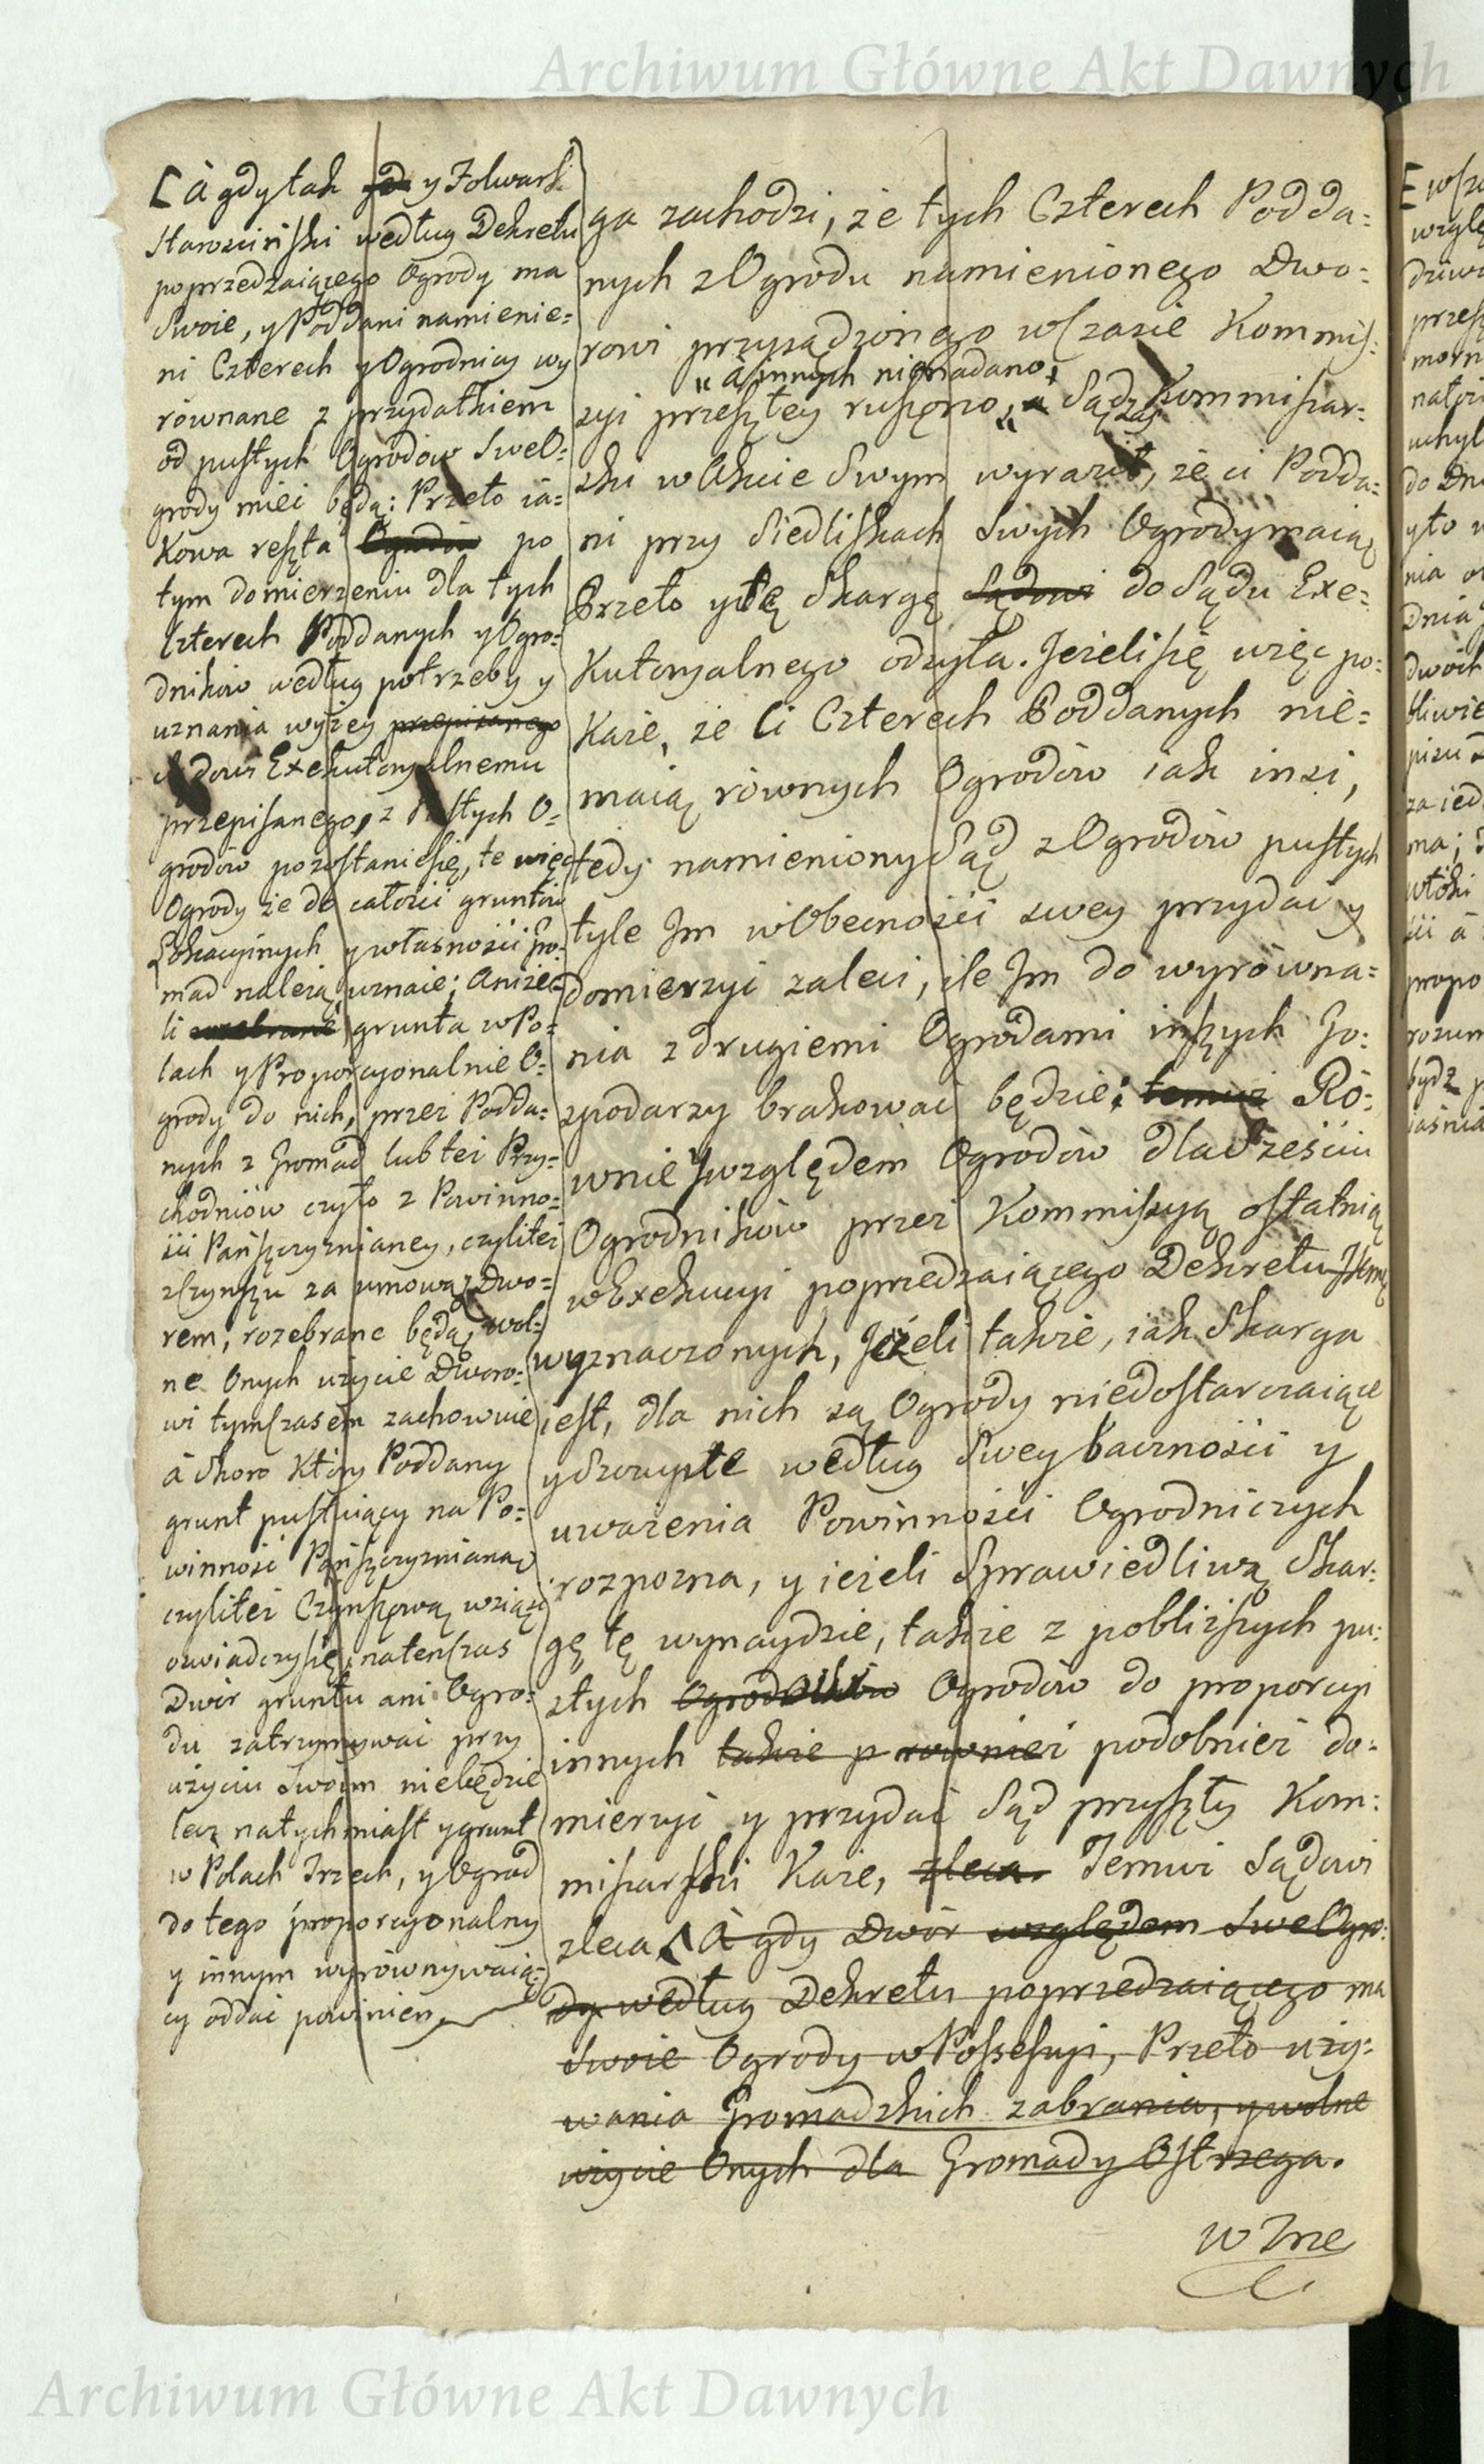 Archiwum Główne Akt Dawnych
[à gdy tak gd y Folwark
Starościński według Dekretu
poprzedzaiącego Ogrody ma
Swoie, y Poddani namienie=
ni Czterech y Ogrodnicy wy
równane z przydatkiem
od pustych Ogrodów Swe O=
grody mieć będą: Przeto ia=
Kowa reszta Ogrodów po
tym domierzeniu dla tych
Czterech Poddanych y Ogro=
dników według potrzeby y
uznania wyżey przepisanego
Sądowi Exekutoryalnemu
przepisanego, z Pustych O=
grodów pozostanie się, te więc
Ogrody że do całości gruntów
Lokacyinych y własności Gro=
mad należą, uznaie; Aniże=
li rozebrane grunta w Po=
lach y Proporcyonalnie O=
grody do nich, przez Podda=
nych z Gromad lub też Przy=
chodniów czyto z Powinno=
ści Pańszczyznianey, czyliteż
z Czynszu za umową z Dwo=
rem, rozebrane będą, wol=
ne Onych użycie Dworo=
wi tymczasem zachowuie
à skoro Który Poddany
grunt pustuiący na Po=
winność Pańszczyznianą
czyliteż Czynszową wziąść
oswiadczy się, natenczas
Dwór gruntu ani Ogro=
du zatrzymywać przy
użyciu Swoim niebędzie
lecz natychmiast y grunt
w Polach Trzech, y Ogród
do tego proporcyonalny
y innym wyrównywaią=
cy oddać powinien.
ga zachodzi, że tych Czterech Podda=
nych z Ogrodu namienionego Dwo=
rowi przysądzonego w Czasie Kommis=
"à innych nienadano,
zyi przeszłey ruszono, a Sąd zaś Kommisar=
ski w Akcie Swym wyraził, że ci Podda=
ni przy Siedliskach Swych Ogrody maią
Przeto y tę Skargę Sądowi do Sądu Exe=
Kutoryalnego odsyła. Jeżeli się więc po=
Każe, że Ci Czterech Poddanych nie=
maią równych Ogrodów iak insi,
tedy namieniony Sąd z Ogrodów pustych
tyle Im w Obecności swey przydać y
domierzyć zaleci, ile Im do wyrówna=
nia z drugiemi Ogrodami inszych Go=
spodarzy brakować będzie; temuż Ró=
wnie y względem Ogrodów dla Sześciu
Ogrodników przez Kommissyą ostatnią
w Exekucyi poprzedzaiącego Dekretu
wyznaczonych, Jeżeli także, iak Skarga
iest, dla nich są Ogrody niedostarczaiące
y Szczupłe według Swey baczności y
uważenia Powinności Ogrodniczych
rozpozna, y ieżeli Sprawiedliwą Skar=
gę tę wynaydzie, także z pobliższych pu=
stych Ogrodników Ogrodów do proporcyi
innych także p rownież podobnież do=
mierzyć y przydać Sąd przyszły Kom=
misarski Każe, zleca. Temuż Sądowi
zleca [À gdy Dwór względem Swe Ogro=
dy według Dekretu poprzedzaiącego ma
Swoie Ogrody w Possessyi, Przeto uży=
wania Gromadzkich zabrania, y wolne
użycie Onych dla Gromady Ostrzega.
Archiwum Główne Akt Dawnych